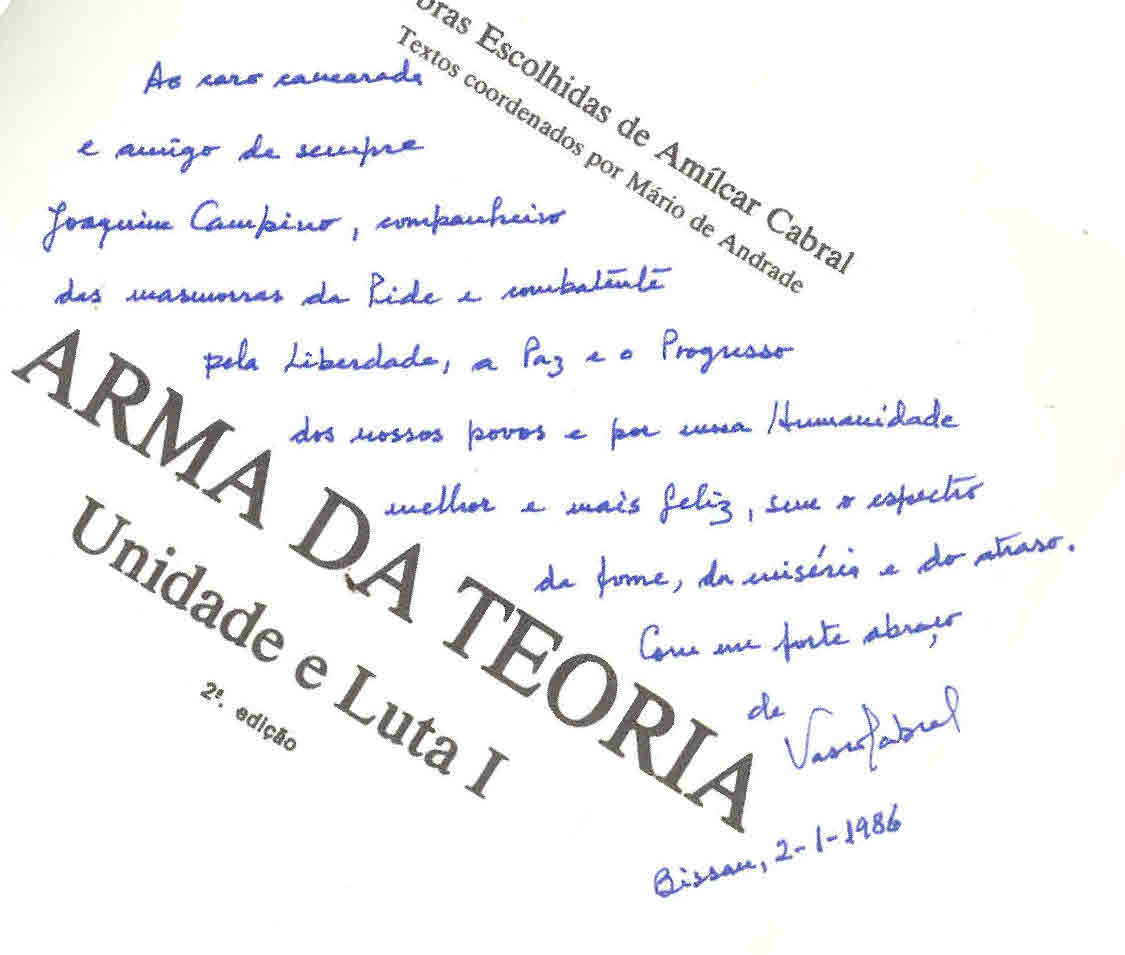 bras Escolhidas de Amílcar Cabral
Textos coordenados por Mário de Andrade
Ao caro camarada
e amigo de sempre
Joaquim Campino, companheiro
das masmorras da Pide e combatente
pela Liberdade, a Paz e o Progresso
dos nossos povos e por uma Humanidade
melhor e mais feliz, sem o espectro
da fome, da miséria e do atraso.
Com um forte abraço
de
Vasco Cabral
Bissau, 2-1-1986
ARMA DA TEORIA
Unidade e Luta I
2ª. edição